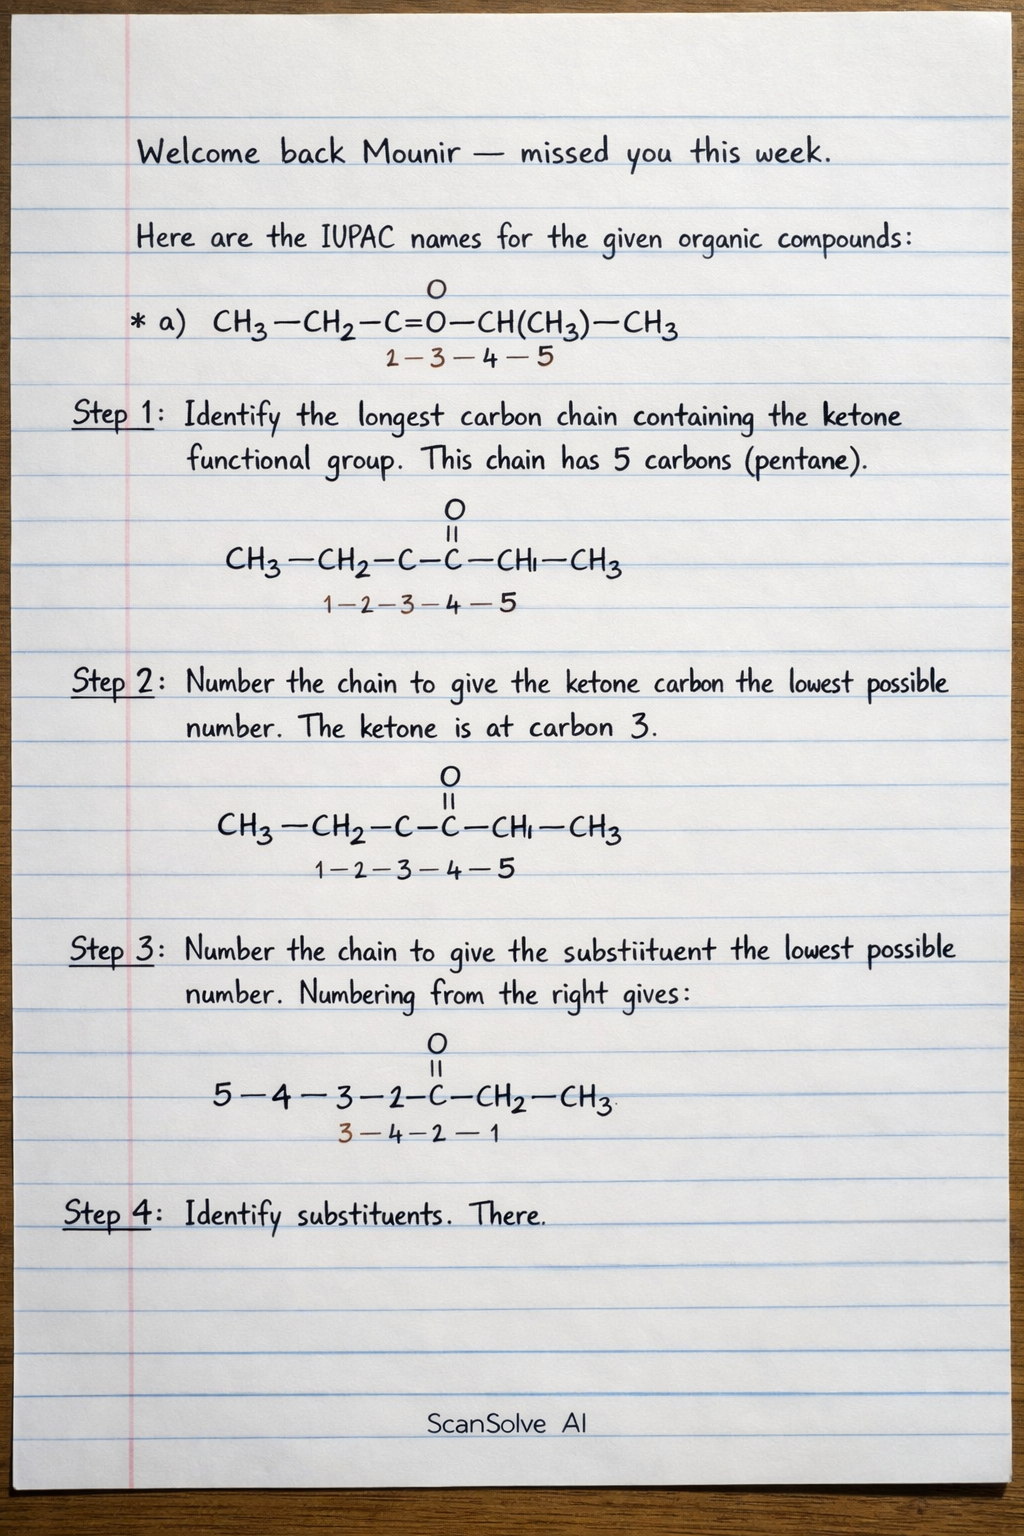 Welcome back Mounir — missed you this week.
Here are the IUPAC names for the given organic compounds:
O
* a) CH₃—CH₂—C=O—CH(CH₃)—CH₃
2—3—4—5
Step 1: Identify the longest carbon chain containing the ketone
functional group. This chain has 5 carbons (pentane).
O
||
CH₃—CH₂—C—C—CHı—CH₃
1—2—3—4—5
Step 2: Number the chain to give the ketone carbon the lowest possible
number. The ketone is at carbon 3.
O
||
CH₃—CH₂—C—C—CHı—CH₃
1—2—3—4—5
Step 3: Number the chain to give the substiituent the lowest possible
number. Numbering from the right gives:
O
||
5—4—3—2—C—CH₂—CH₃.
3—4—2—1
Step 4: Identify substituents. There.
ScanSolve AI